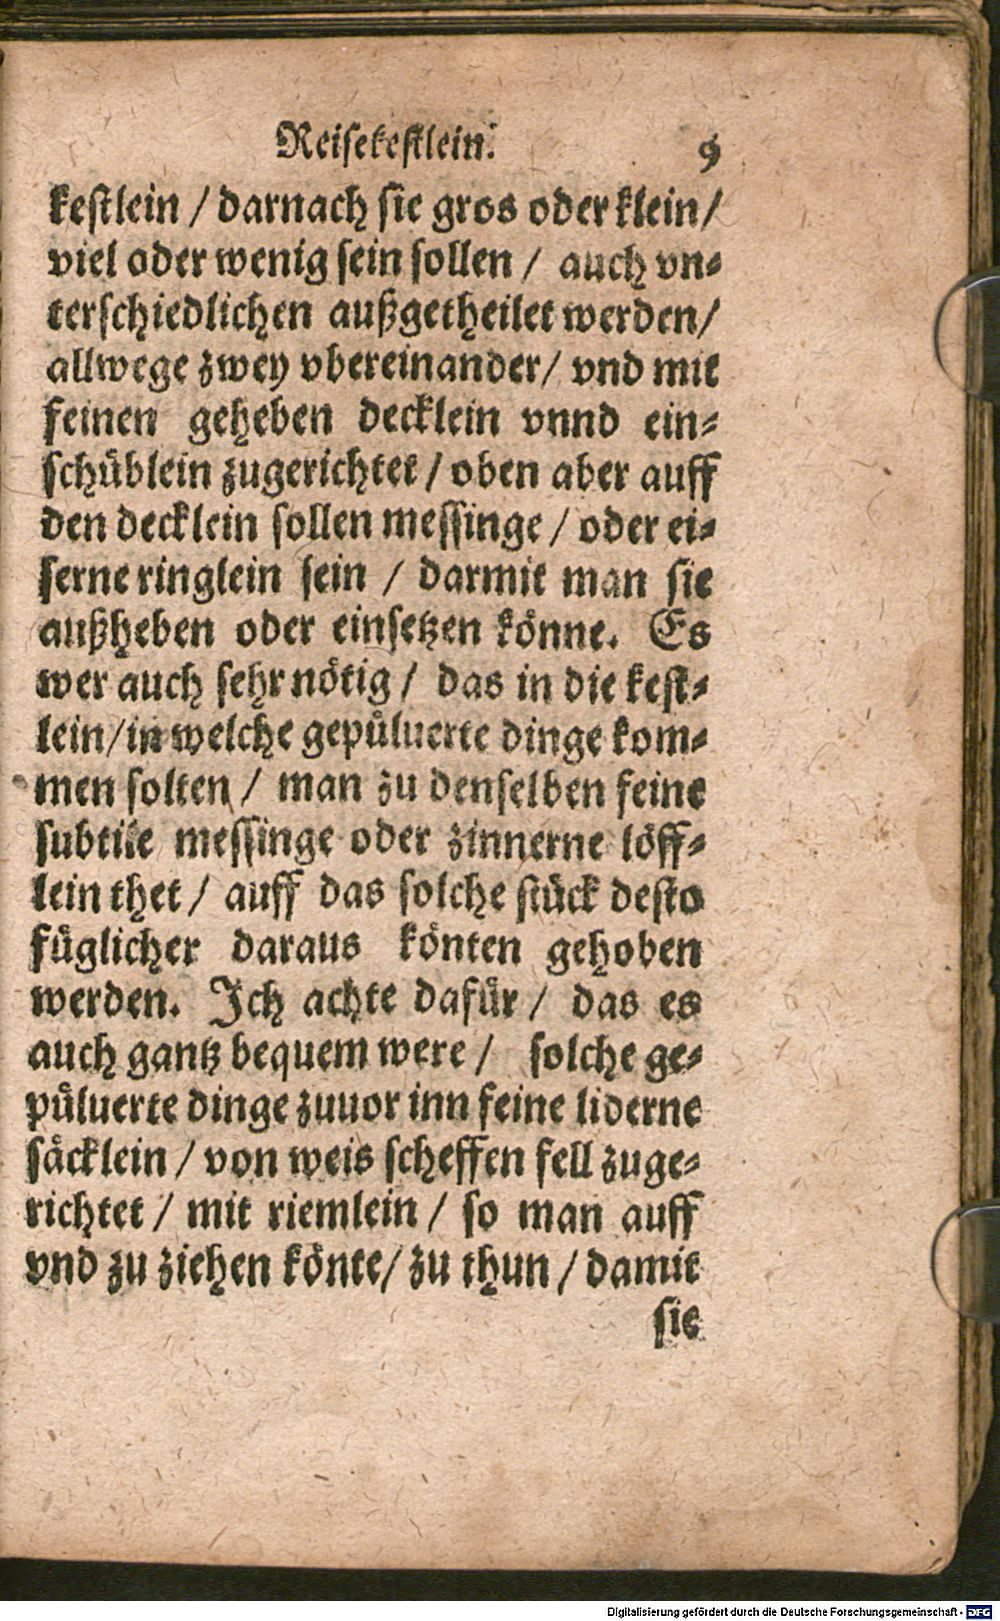 Reisekestlein. 9
kestlein / darnach sie gros oder klein /
viel oder wenig sein sollen / auch vn-
terschiedlichen außgetheilet werden /
allwege zwey vbereinander / vnd mit
feinen geheben decklein vnnd ein-
schüblein zugerichtet / oben aber auff
den decklein sollen messinge / oder ei-
serne ringlein sein / darmit man sie
außheben oder einsetzen könne. Es
wer auch sehr nötig / das in die kest-
lein / in welche gepüluerte dinge kom-
men solten / man zu denselben feine
subtile messinge oder zinnerne löff-
lein thet / auff das solche stück desto
füglicher daraus könten gehoben
werden. Ich achte dafür / das es
auch gantz bequem were / solche ge-
püluerte dinge zuuor inn feine liderne
säcklein / von weis scheffen fell zuge-
richtet / mit riemlein / so man auff
vnd zu ziehen könte / zu thun / damit
sie
Digitalisierung gefördert durch die Deutsche Forschungsgemeinschaft - DFG